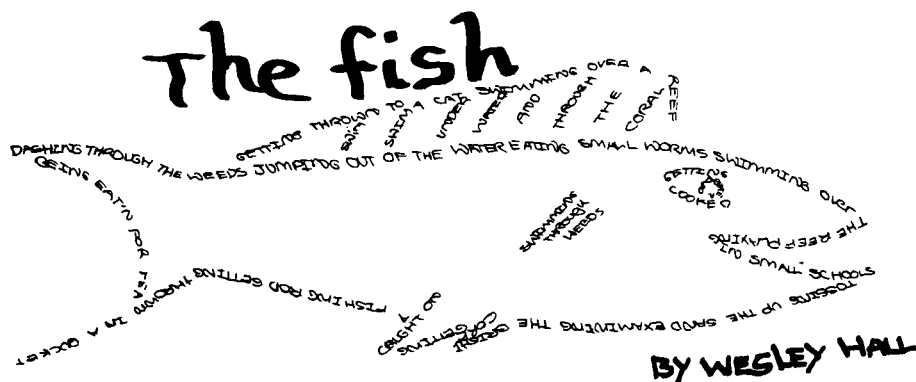 The fish
GETTING THROWN TO A CAT SWIMMING OVER A REEF
SWIM
UNDER
WATER
AND
THROUGH
THE
CORAL
DASHING THROUGH THE WEEDS JUMPING OUT OF THE WATER EATING SMALL WORMS SWIMMING OVER
THE REEF PLAYING
IN SMALL SCHOOLS
TOSSING UP THE SAND EXAMINING THE BRIGHT
CORAL
GETTING
CAUGHT ON
A
FISHING ROD GETTING THROWN IN A BUCKET
BEING EAT'N FOR TEA
GETTING
COOKED
SWIMMING
THROUGH
WEEDS
BY WESLEY HALL